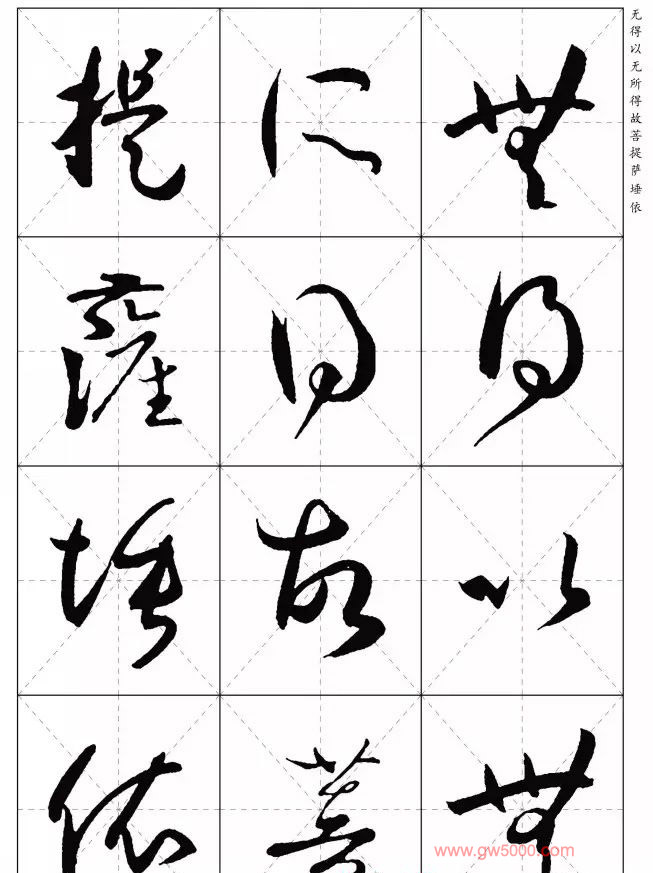 无得以无所得故菩提萨埵依
無得以無
所得故菩
提薩埵依
www.gw5000.com